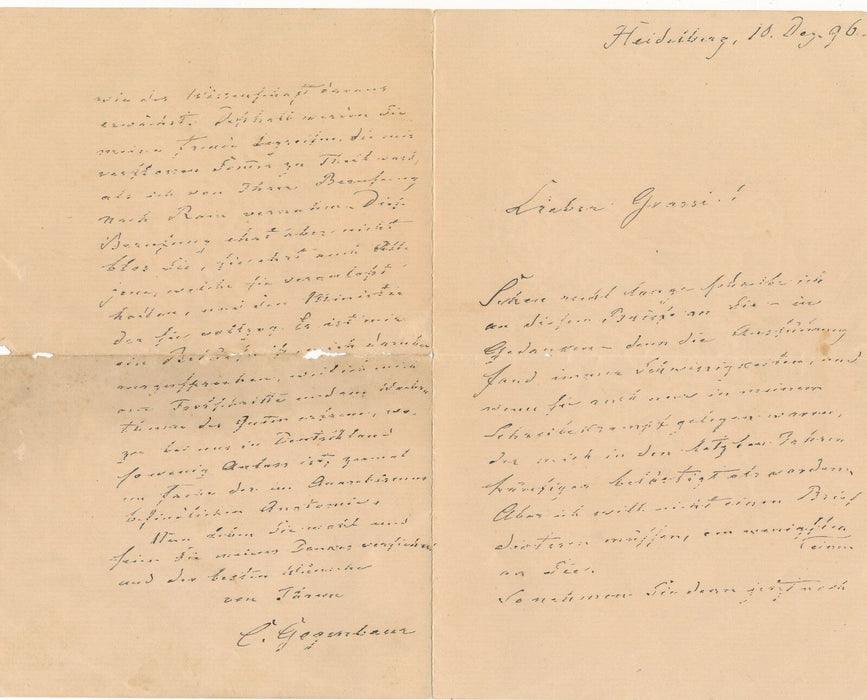 Heidelberg, 10. Dez. 96.
Lieber Grassi!
Schon recht lange schreibe ich
an diesem Briefe an Sie – in
Gedanken – denn die Ausführung
fand immer Schwierigkeiten, und
wenn sie auch nur in meinem
Schreibekrampf gelegen waren,
der mich in den letzten Jahren
häufiger belästigt als vordem.
Aber ich will nicht einen Brief
dictieren müssen, am wenigsten
einen
an Sie.
So nehmen Sie denn jetzt noch
wie der Wissenschaft daraus
erwächst. Deshalb werden Sie
meine Freude begreifen, die mir
zu Theil ward,
als ich von Ihrer Berufung
nach Rom vernahm. Diese
Berufung ehrt aber nicht
blos Sie, sie ehrt auch
jene, welche sie veranlaßt
haben, und den Minister
der sie vollzog. Es ist mir
ein Bedürfniß mich darüber
auszusprechen, weil ich mich
am Fortschritte und am
des Guten erfreue, wo-
zu bei uns in Deutschland
so wenig Anlass ist, zumal
im Fache der im Marasmus
befindlichen Anatomie.
Nun leben Sie wohl und
seien Sie meines Dankes versichert
und der besten Wünsche
von Ihrem
C. Gegenbaur